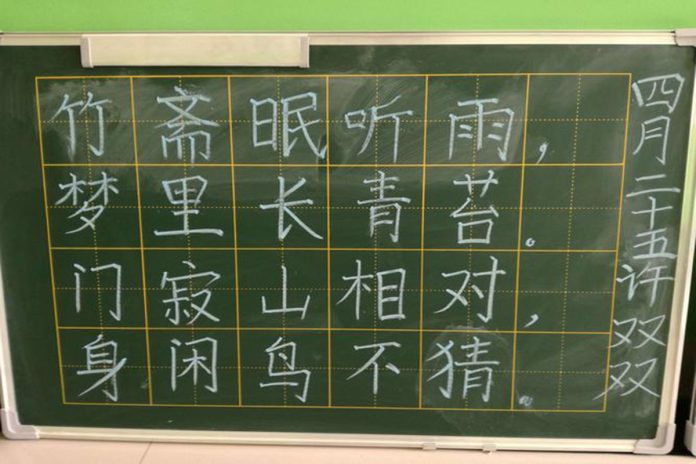 竹斋眠听雨，
梦里长青苔。
门寂山相对，
身闲鸟不猜。
四月二十五许双双